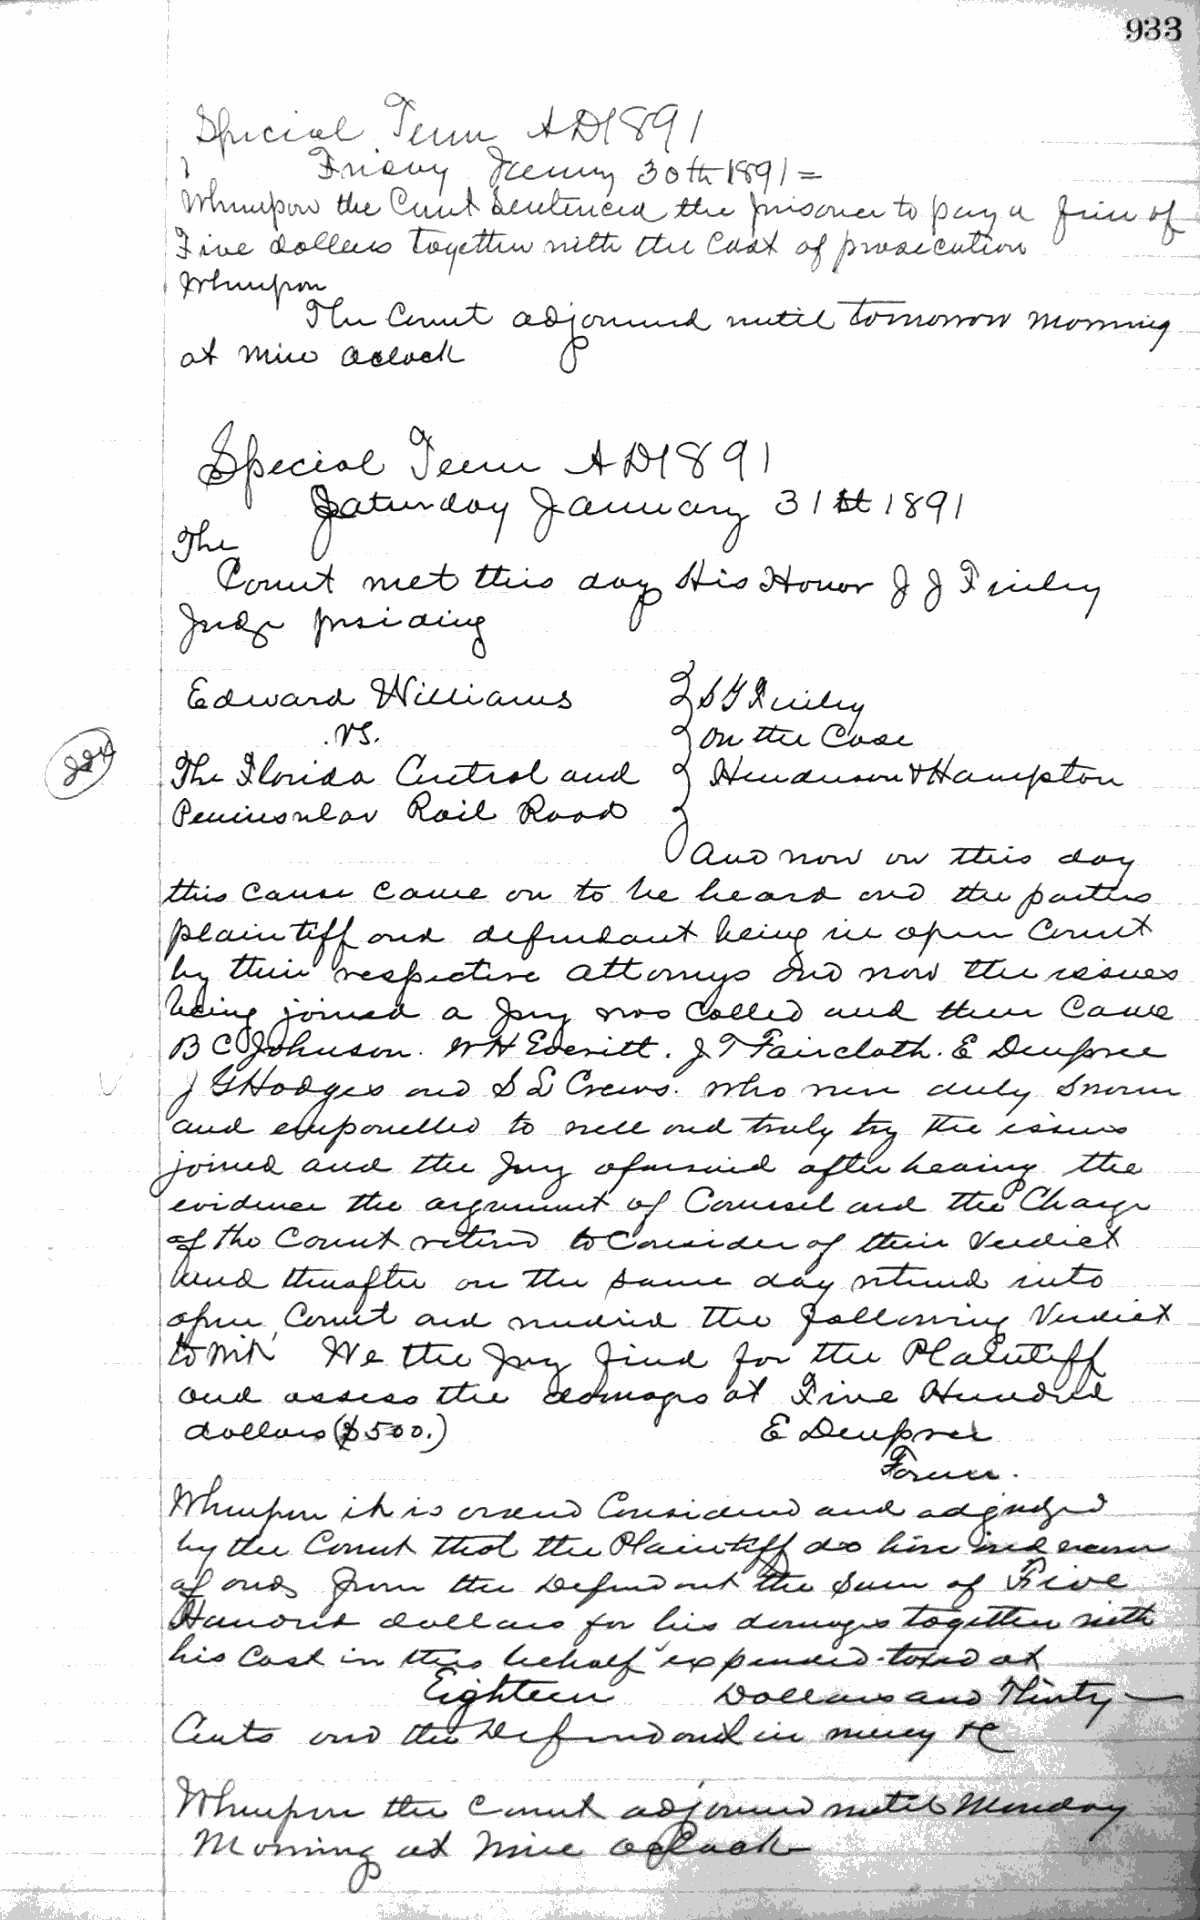 933
Special Term AD1891
Friday January 30th 1891 =
Whereupon the Court Sentenced the prisoner to pay a fine of
Five dollars together with the Cost of prosecution
Whereupon
The Court adjourned until tomorrow morning
at Nine Oclock
Special Term AD1891
Saturday January 31st 1891
The
Court met this day His Honor J J Finley
Judge presiding
Edward Williams } S Y Finley
vs. } On the Case
224 The Florida Central and } Henderson & Hampton
Peninsular Rail Road }
And now on this day
this Cause Came on to be heard and the parties
plaintiff and defendant being in open Court
by their respective attorneys and now the issues
being joined a Jury was Called and then Came
B C Johnson. W H Everitt. J T Faircloth. E Deupree
J G Hodges and S L Crews. Who were duly Sworn
and empanelled to well and truly try the issues
joined and the Jury aforesaid after hearing the
evidence the argument of Counsel and the Charge
of the Court retired to Consider of their Verdict
and thereafter on the same day returned into
open Court and rendered the following Verdict
to wit We the Jury find for the Plaintiff
and assess the damages at Five Hundred
dollars ($500.) E Deupree
Foreman.
Whereupon it is ordered Considered and adjudged
by the Court that the Plaintiff do have and recover
of and from the Defendant the Sum of Five
Hundred dollars for his damages together with
his Cost in this behalf expended taxed at
Eighteen Dollars and Thirty —
Cents and the Defendant in mercy &c
Whereupon the Court adjourned until Monday
Morning at Nine Oclock